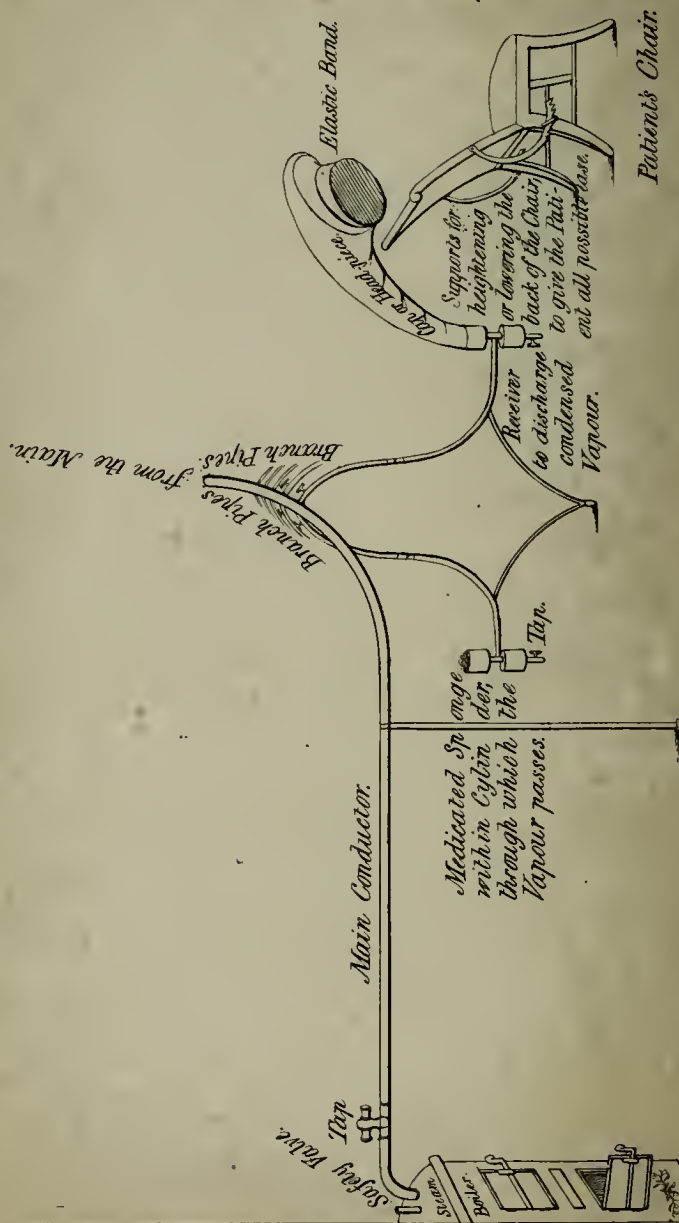 Safety Valve.
Tap
Main Conductor.
Steam
Boiler.
Branch Pipes
Branch Pipes
from the Main.
Medicated Sponge
within Cylinder,
through which the
Vapour passes.
Tap.
Receiver
to discharge
condensed
Vapour.
Cap or Head-piece.
Elastic Band.
Supports for
heightening
or lowering the
back of the Chair,
to give the Pati-
ent all possible ease.
Patient's Chair.